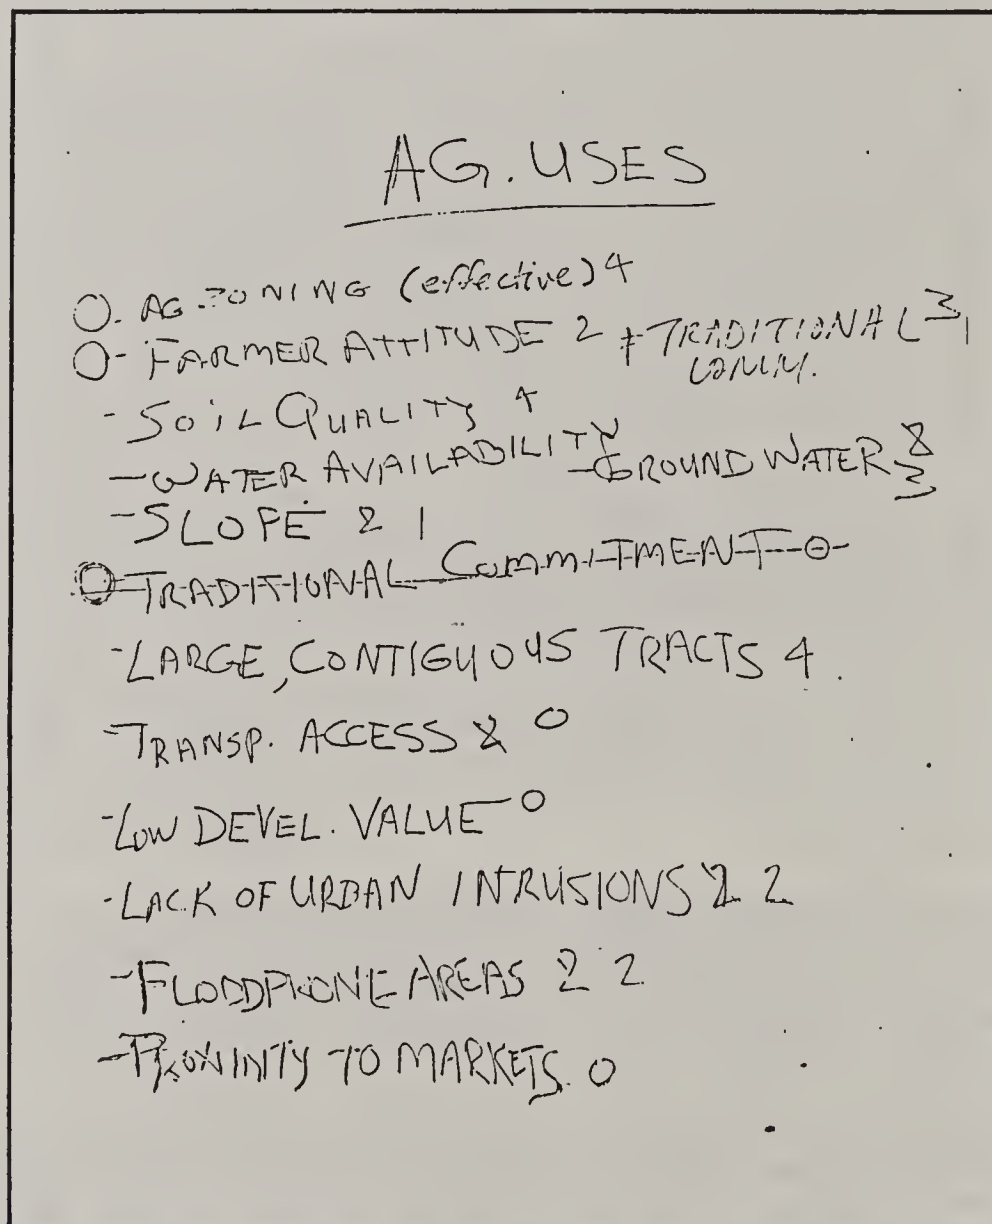 AG. USES
O. AG ZONING (effective) 4
O- FARMER ATTITUDE 2 + TRADITIONAL 3
COMM.
- SOIL QUALITY 4
- WATER AVAILABILITY - GROUND WATER 3
- SLOPE 2 1
O- TRADITIONAL COMMITMENT 0
- LARGE, CONTIGUOUS TRACTS 4
- TRANSP. ACCESS 0
- LOW DEVEL. VALUE 0
- LACK OF URBAN INTRUSIONS 2
- FLOODPRONE AREAS 2 2
- PROXIMITY TO MARKETS 0